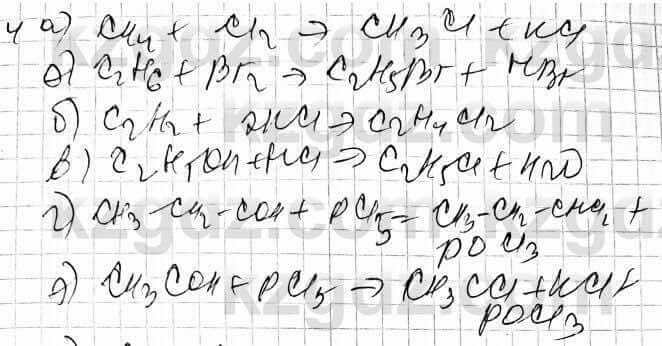 4 а) CH4 + Cl2 → CH3Cl + HCl
а) C2H6 + Br2 → C2H5Br + HBr
б) C2H2 + 2HCl → C2H4Cl2
в) C2H5OH + HCl → C2H5Cl + H2O
г) CH3-CH2-COH + PCl5 = CH3-CH2-CHCl2 +
POCl3
д) CH3COH + PCl5 → CH3CCl + HCl +
POCl3